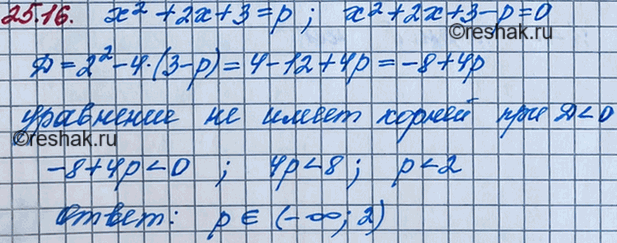 25.16. x² + 2x + 3 = p ; x² + 2x + 3 - p = 0
D = 2² - 4·(3-p) = 4 - 12 + 4p = -8 + 4p
уравнение не имеет корней при D < 0
©reshak.ru
-8 + 4p < 0 ; 4p < 8 ; p < 2
Ответ: p ∈ (-∞; 2)